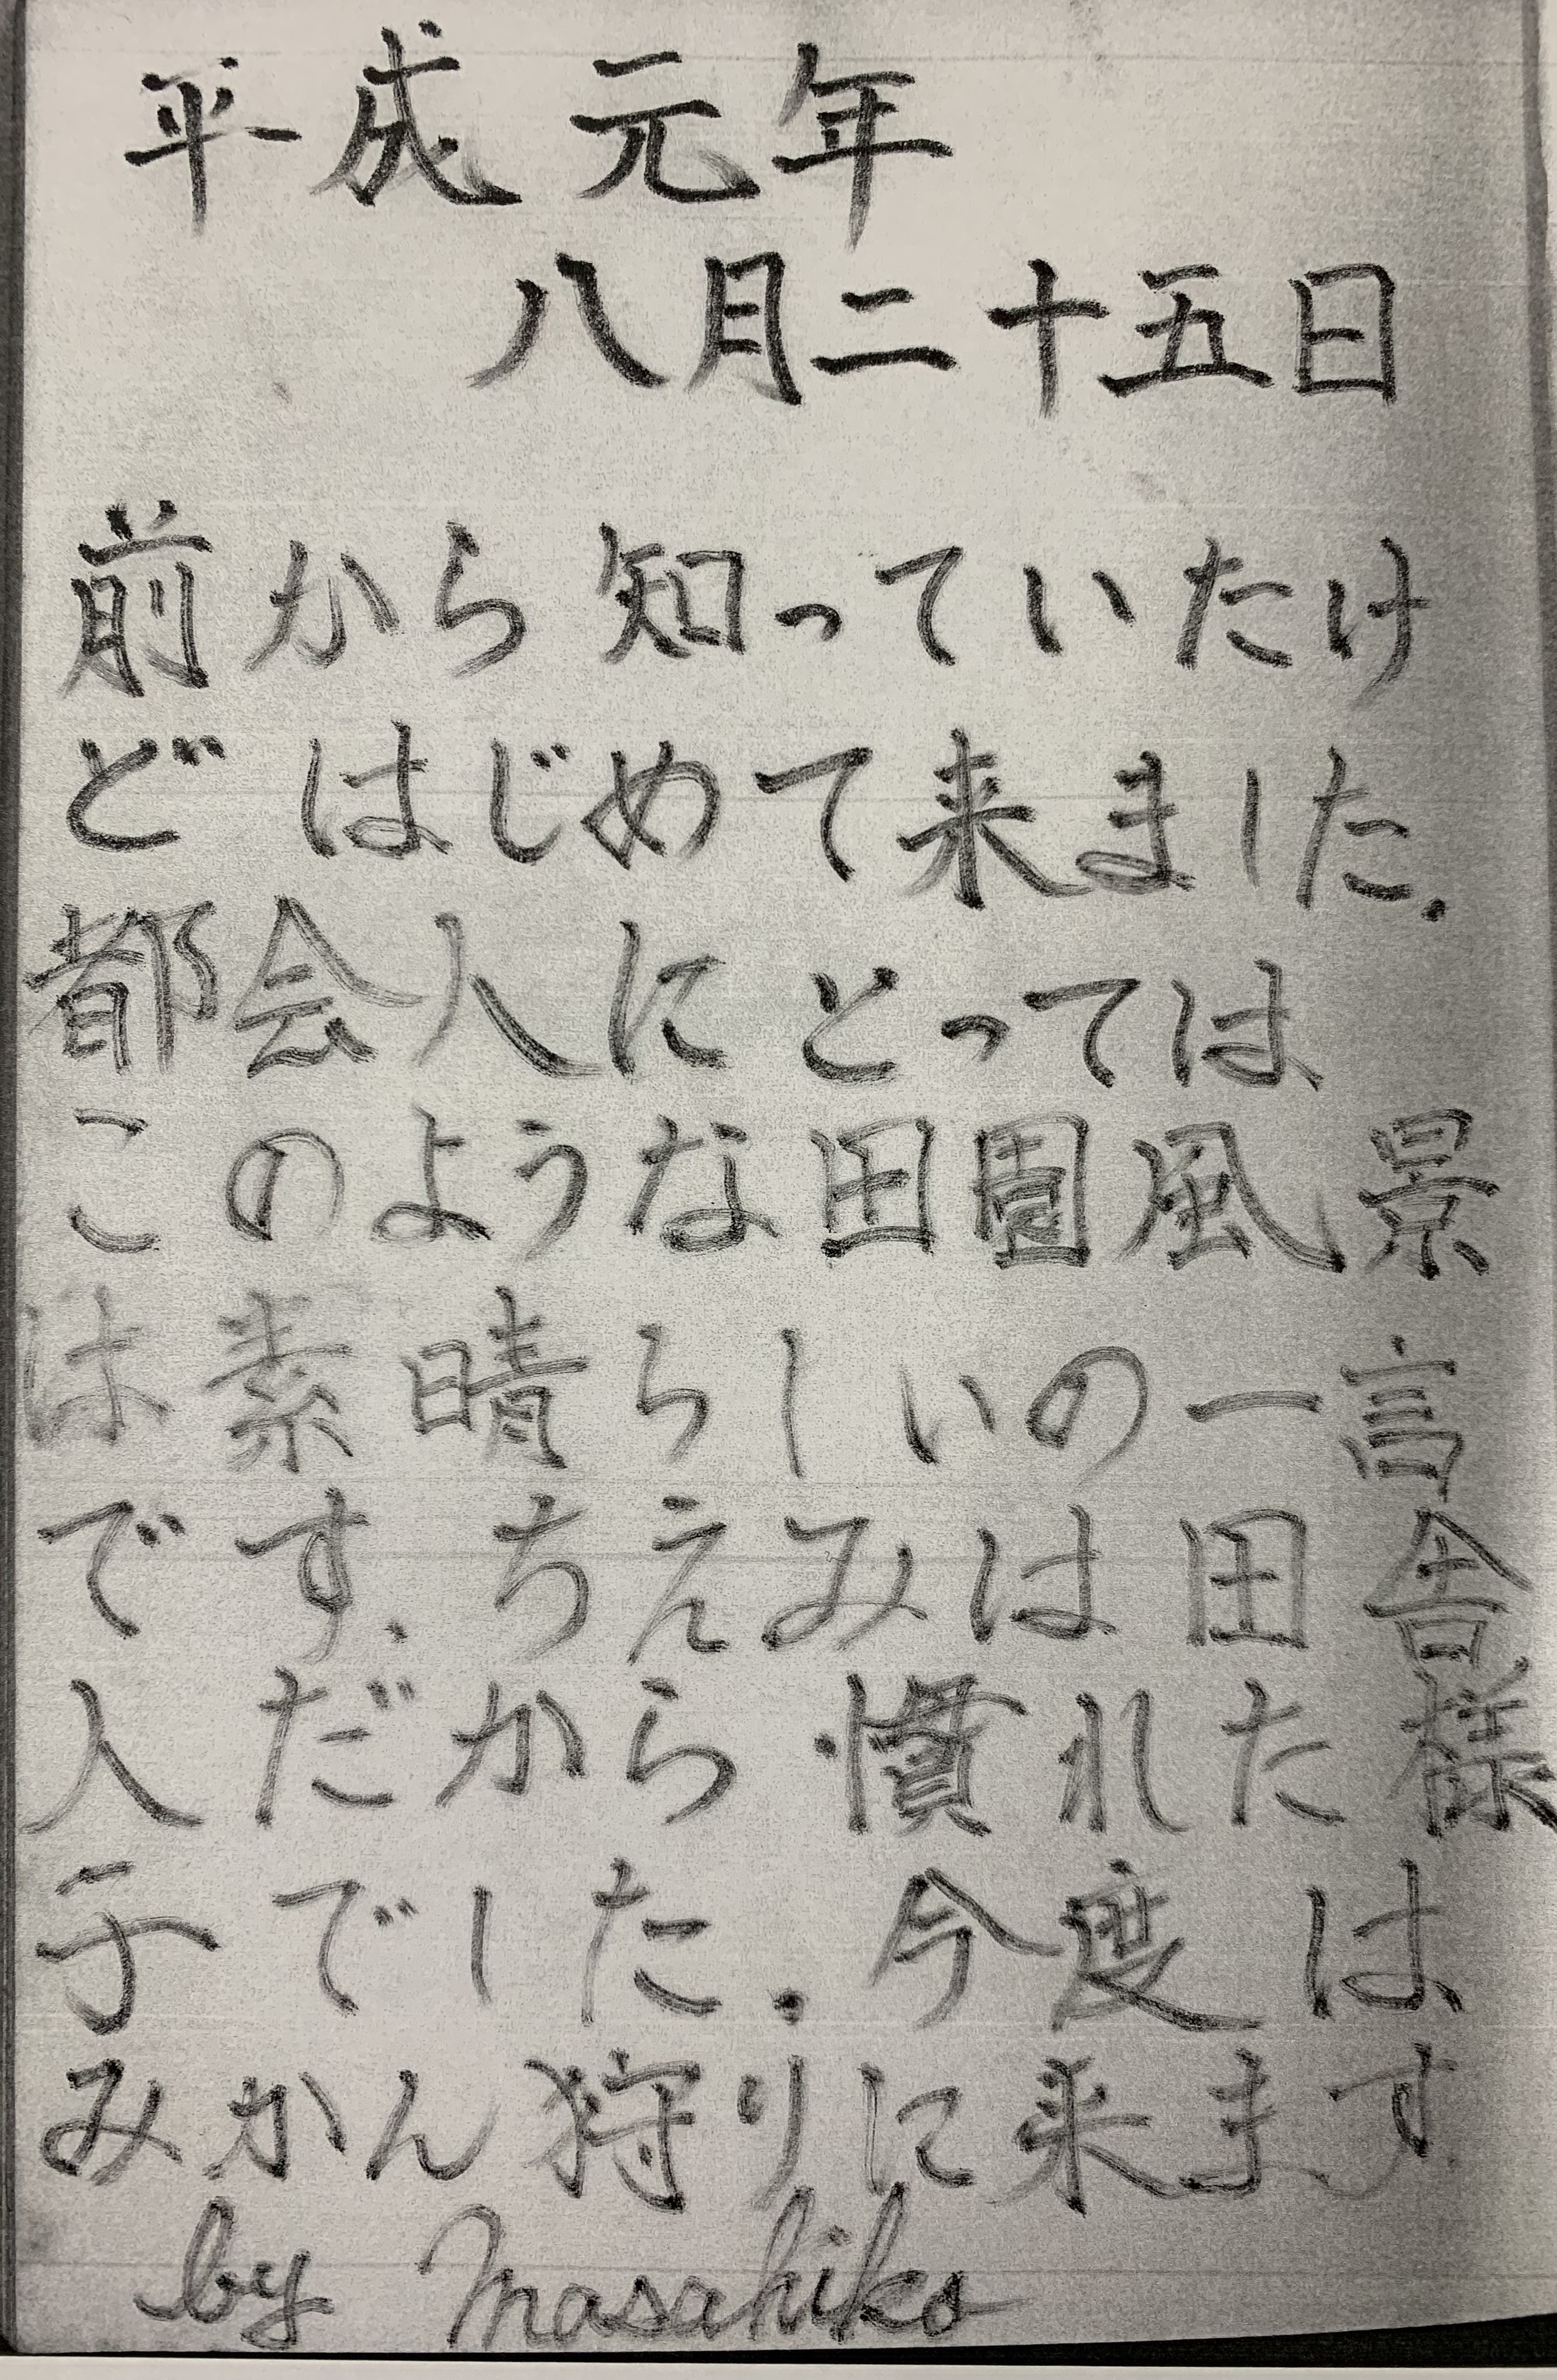 平成元年
八月二十五日
前から知っていたけ
どはじめて来ました.
都会人にとっては
このような田園風景
は素晴らしいの一言
です.ちえみは田舎
人だから慣れた様
子でした.今度は
みかん狩りに来ます.
by Masahiko